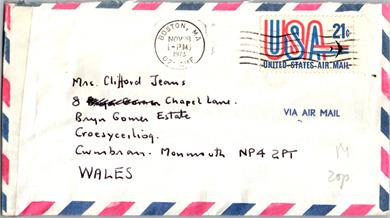 BOSTON, MA
NOV
1-PM
1973
USA 21c
UNITED STATES AIR MAIL
Mrs. Clifford Jeans
8 Chapel Lane.
Bryn Gomer Estate
Croesyceiliog.
VIA AIR MAIL
Cwmbran. Monmouth NP4 2PT
WALES
20p